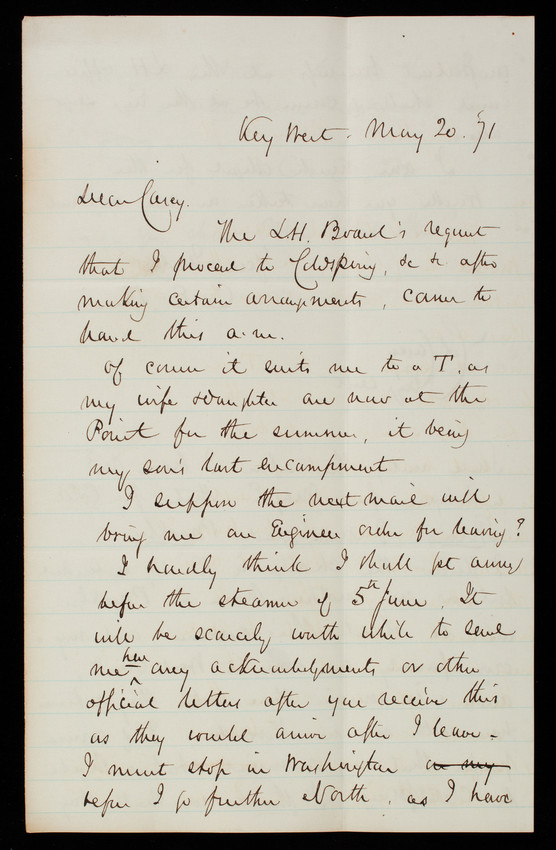 Key West. May 20. 71
Dear Casey.
The L.H. Board's request
that I proceed to Coldspring, &c &c after
making certain arrangements, came to
hand this a.m.
Of course it suits me to a T. as
my wife & daughter are now at the
Point for the summer, it being
my son's last encampment
I suppose the next mail will
bring me an Engineer order for leaving?
I hardly think I shall get away
before the steamer of 5th June. It
will be scarcely worth while to send
me here any acknowledgments or other
official letters after you receive this
as they would arrive after I leave -
I must stop in Washington on my
before I go further North, as I have